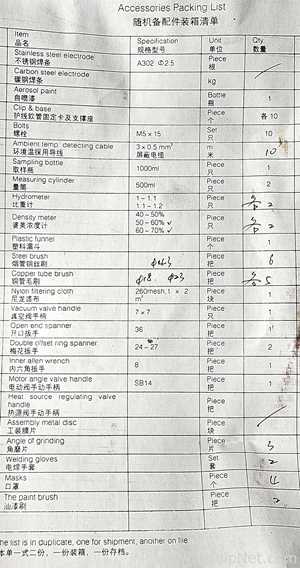 Accessories Packing List
随机备配件装箱清单
Item Specification Unit Qty.
品名 规格型号 单位 数量
Stainless steel electrode Piece
不锈钢焊条 A302 Φ2.5 根
Carbon steel electrode
碳钢焊条 kg
Aerosol paint Bottle
自喷漆 瓶 1
Clip & base Piece
护线软管固定卡及支撑座 各 10
Bolts Set
螺栓 M5×15 只 10
Ambient temp. detecting cable 3×0.5 mm² m
环境温采用导线 屏蔽电缆 米 10
Sampling bottle Piece
取样瓶 1000ml 只 1
Measuring cylinder Piece
量筒 500ml 只 2
Hydrometer 1-1.1 Piece
比重计 1.1-1.2 只 各 2
Density meter 40-50% Piece
50-60% ✓
60-70% ✓ 只 各 2
Plastic funnel Piece
塑料漏斗 个 1
Steel brush Piece
烟管钢丝刷 把 6
Copper tube brush Φ18 Φ23 Piece
铜管毛刷 把 各 5
Nylon filtering cloth 260mesh,1×2 Piece
尼龙滤布 m² 块 1
Vacuum valve handle Piece
真空阀手柄 7×7 只 1
Open end spanner Piece
只口扳手 36 把 1
Double offset ring spanner 24-27 Piece
梅花扳手 把 2
Inner allen wrench Piece
内六角扳手 8 把 1
Motor angle valve handle Piece
电动阀手动手柄 SB14 把 1
Heat source regulating valve Piece
handle
热源阀手动手柄 把
Assembly metal disc Piece
工装膜片 块
Angle of grinding Piece
角磨片 片 3
Welding gloves Set
电焊手套 套 2
Masks Piece
口罩 个 4
The paint brush Piece
油漆刷 把 2
he list is in duplicate, one for shipment, another on file
本单一式二份，一份装箱，一份存档。